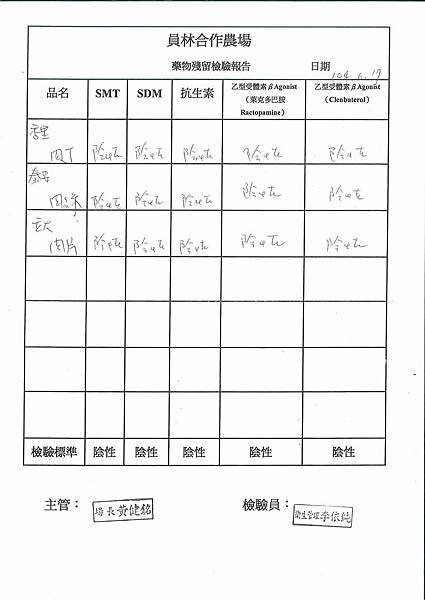 員林合作農場
藥物殘留檢驗報告 日期 104.6.17
品名 SMT SDM 抗生素 乙型受體素βAgonist 乙型受體素βAgonist
(萊克多巴胺 (Clenbuterol)
Ractopamine)
肉丁 陰性 陰性 陰性 陰性 陰性
肉絲 陰性 陰性 陰性 陰性 陰性
肉片 陰性 陰性 陰性 陰性 陰性
檢驗標準 陰性 陰性 陰性 陰性 陰性
主管： 場長黃健銘 檢驗員： 衛生管理李依純